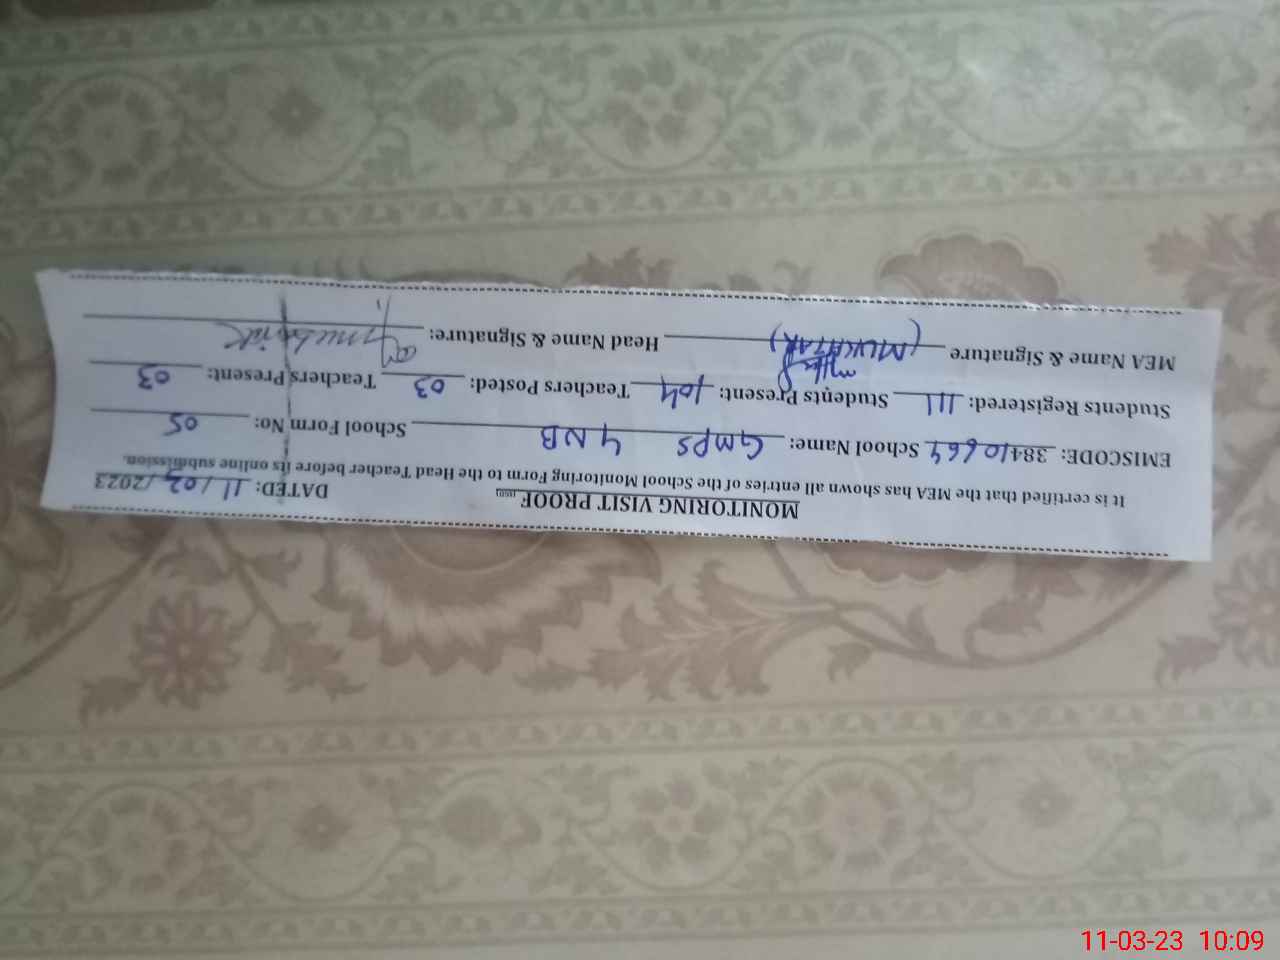 MONITORING VISIT PROOF
DATED: 11/03/2023
It is certified that the MEA has shown all entries of the School Monitoring Form to the Head Teacher before its online submission.
EMISCODE: 38410664 School Name: GMPS 4 NB School Form No: 05
Students Registered: 111 Students Present: 104 Teachers Posted: 03 Teachers Present: 03
MEA Name & Signature (MUKHTAR) Head Name & Signature:
11-03-23 10:09